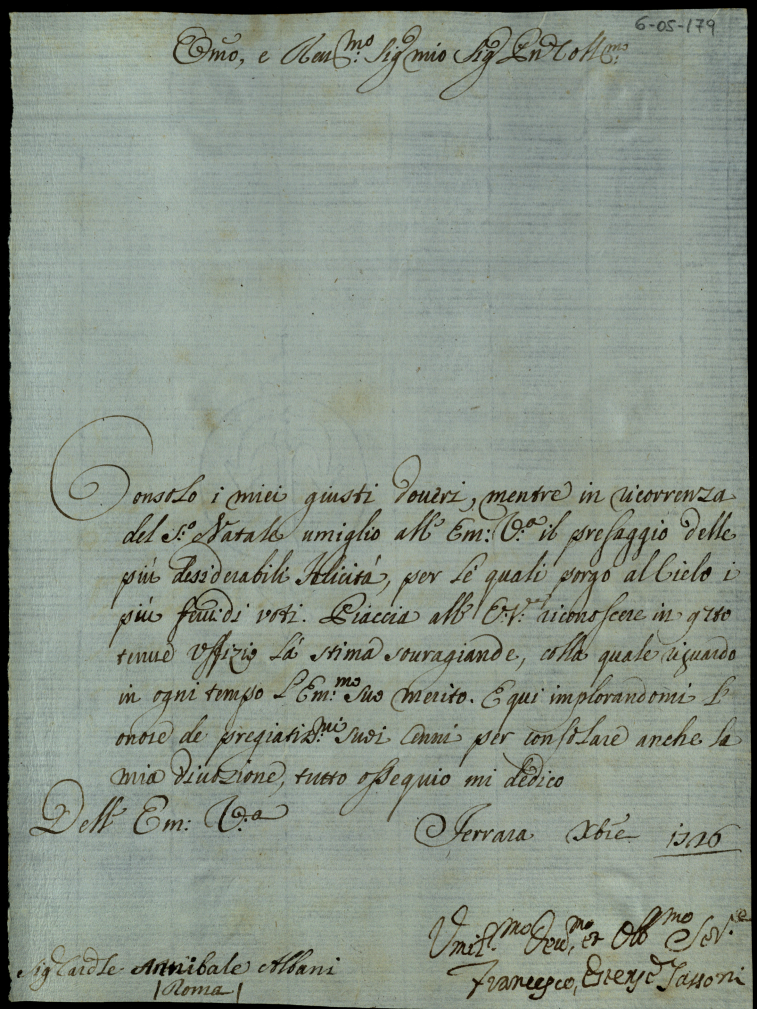 6-05-179
Em̃o, e Reu.mo Sig.r mio Sig.r Pñ Coll.mo
Consolo i miei giusti doueri, mentre in ricorrenza
del S.o Natale umiglio all' Em: V.a il presaggio delle
più dessiderabili felicitá, per le quali porgo al Cielo i
più feruidi voti. Piaccia all' E.V. riconoscere in qsto
tenue Uffizio la stima souragrande, colla quale riguardo
in ogni tempo l'Em.mo suo merito. E qui implorandomi l'
onore de pregiatiss.mi suoi Cenni per consolare anche la
mia diuozione, tutto ossequio mi dedico
Dell' Em: V.a
Ferrara Xbre 1726
Umil.mo Deu.mo et Obb.mo Ser.e
Francesco, Estense Tassoni
Sig Cardle Annibale Albani
|Roma|